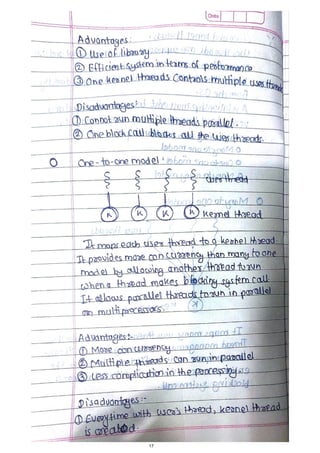 Date
Advantages:
① Use of library
② Efficient system in terms of performance
③ One kernel threads controls multiple user threads
Disadvantages:
① Cannot run multiple threads parallel.
② One block call blocks all the user threads.
One-to-one model:
User thread
K K K K Kernel thread
It maps each user thread to a kernel thread
It provides more concurrency than many to one
model by allowing another thread to run
when a thread makes blocking system call
It allows parallel threads to run in parallel
on multiprocessors.
Advantages:-
① More concurrency
② Multiple threads can run in parallel
③ Less complication in the processing
Disadvantages:-
① Everytime with user's thread, kernel thread
is created.
17